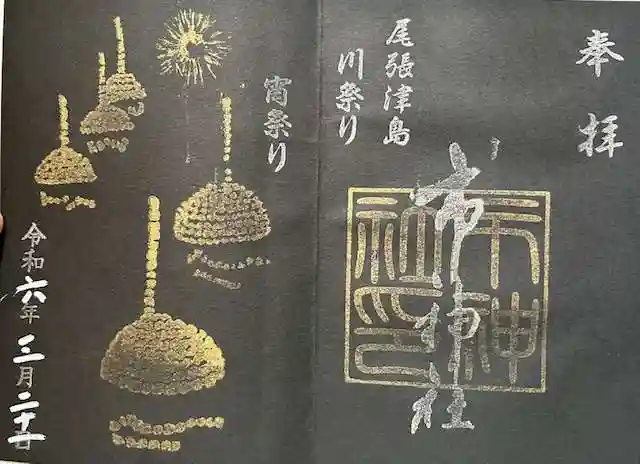 奉拝
市神社
市神
社印
尾張津島
川祭り
宵祭り
令和六年三月二十一日